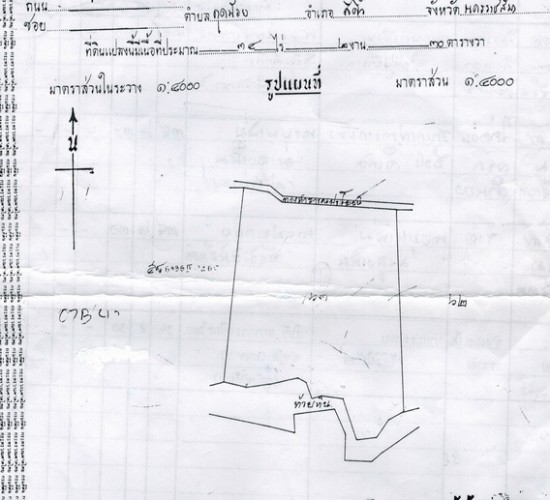 ถนน
ซอย ตำบล กุดน้อย อำเภอ สีคิ้ว จังหวัด นครราชสีมา
ที่ดินแปลงนี้มีเนื้อที่ประมาณ ๓๔ ไร่ ๒ งาน ๓๐ ตารางวา
มาตราส่วนในระวาง ๑:๔๐๐๐ รูปแผนที่ มาตราส่วน ๑:๔๐๐๐
น
ทางสาธารณประโยชน์
๖๑ ๖๒
ห้วยหิน